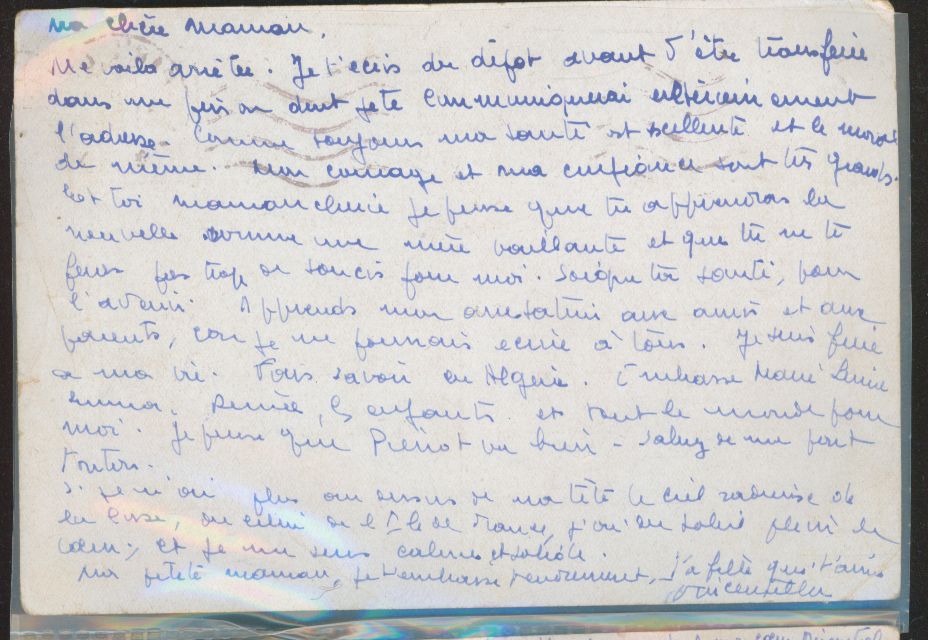 Ma chère maman,
Me voilà arrêtée. Je t'écris du dépôt avant d'être transférée
dans une prison dont je te communiquerai ultérieurement
l'adresse. Comme toujours ma santé est excellente et le moral
de même. Mon courage et ma confiance sont très grands.
Et toi maman chérie je pense que tu apprendras la
nouvelle comme une mère vaillante et que tu ne te
feras pas trop de soucis pour moi. Soigne ta santé, pour
l'avenir. Apprends mon arrestation aux amis et aux
parents, car je ne pourrais écrire à tous. Je suis fière
de ma vie. Fais savoir en Algérie. Embrasse Marie
Emma, Renée, les enfants et tout le monde pour
moi. Je pense que Pierrot va bien - Salue de ma part
Si je n'ai plus au dessus de ma tête le ciel radieux de
la Corse, ou celui de l'Ile de France, j'ai du soleil plein le
cœur, et je me sens calme et solide.
Ma petite maman, je t'embrasse tendrement, ta fille qui t'aime